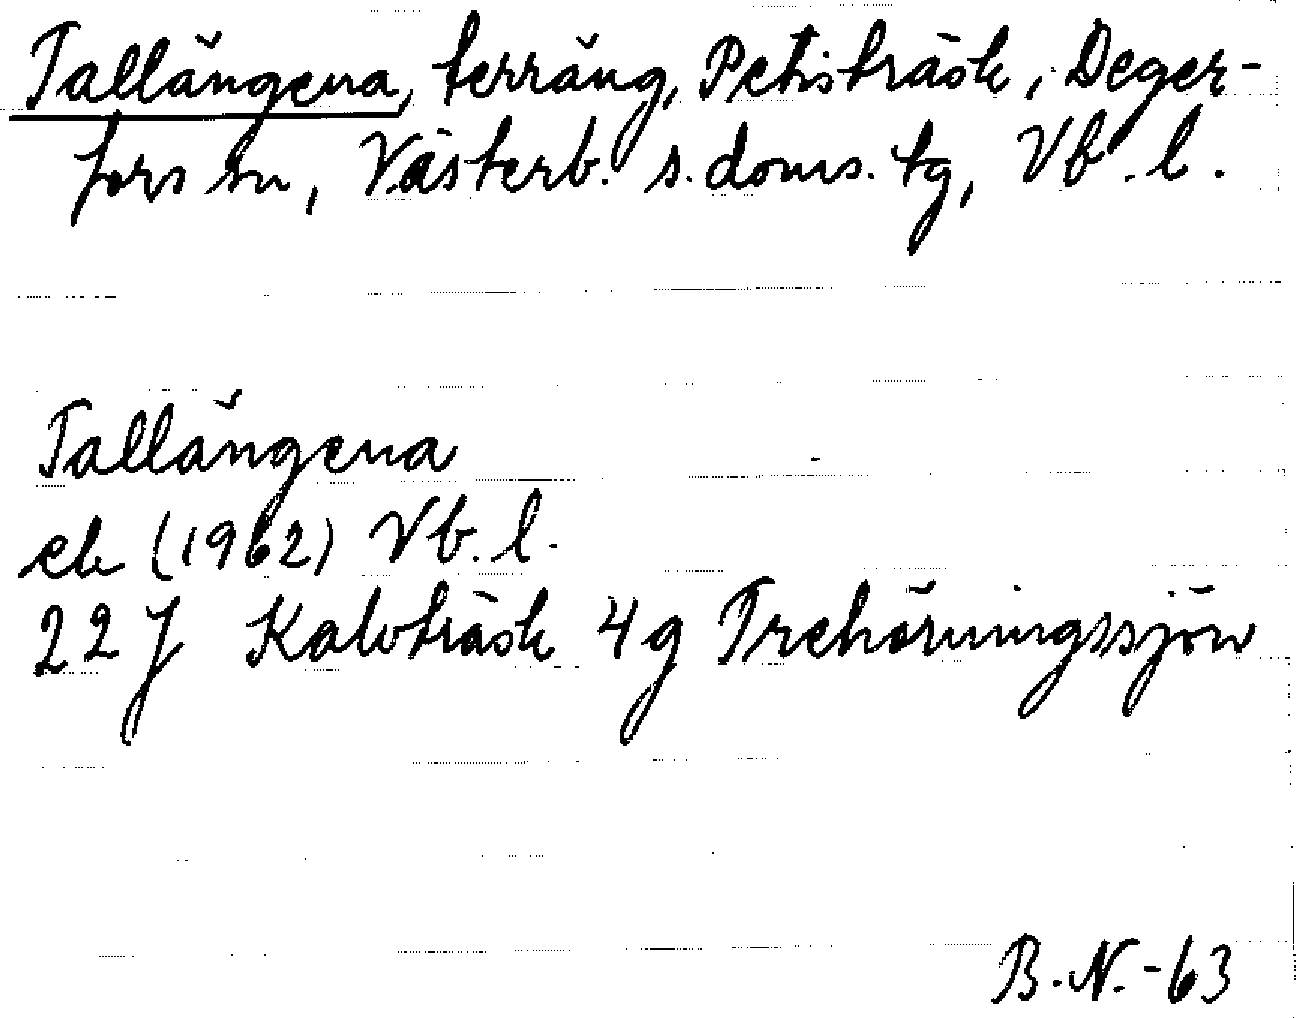 Tallängena, terräng, Petisträsk, Deger-
fors sn, Västerb. s. doms. tg, Vb. l.
Tallängena
ek (1962) Vb. l.
22 J Kalvträsk 4 g Trehörningssjön
B. N. -63